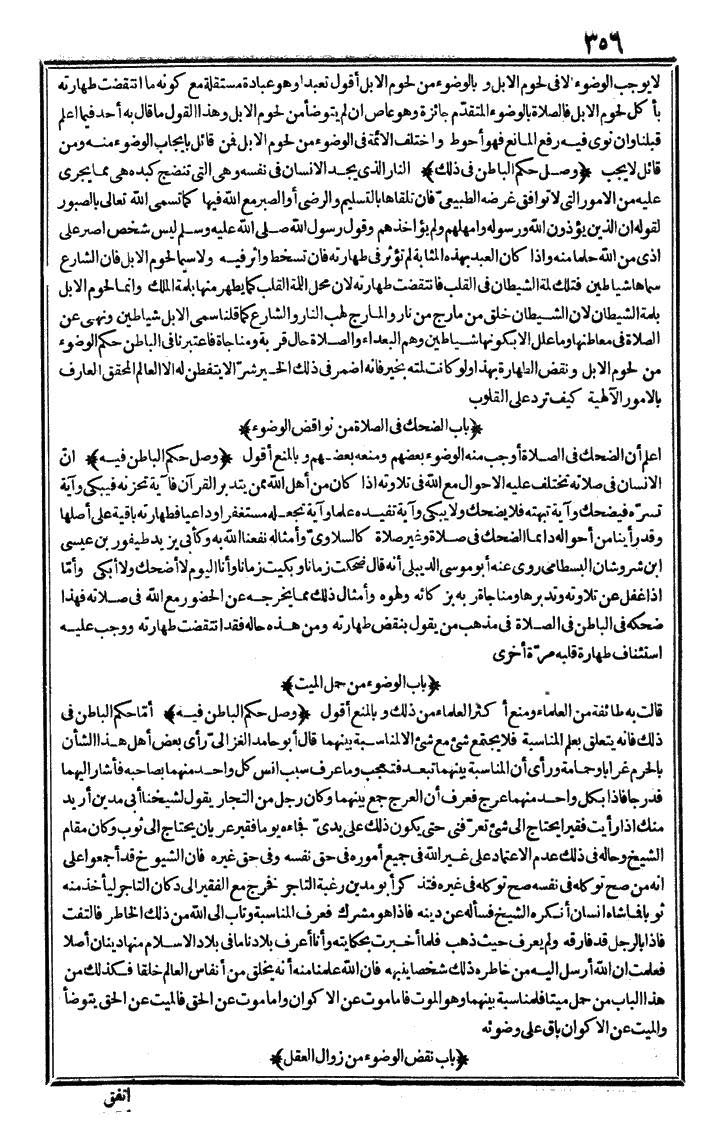 ٣٥٦
لا يوجب الوضوء لا فى لحوم الابل و بالوضوء من لحوم الابل أقول تعبدا وهو عبادة مستقلة مع كونه ما انتقضت طهارته
بأكل لحوم الابل فالصلاة بالوضوء المتقدّم جائزة وهو عاص ان لم يتوضأ من لحوم الابل وهذا القول ما قال به أحد فيما اعلم
قبلنا وان نوى فيه رفع المانع فهو أحوط واختلف الأئمة فى الوضوء من لحوم الابل فمن قائل بايجاب الوضوء منه ومن
قائل لا يجب ﴿وصل حكم الباطن فى ذلك﴾ النار الذى يجد الانسان فى نفسه وهى التى تنضج كبده هى مما يجرى
عليه من الامور التى لا توافق غرضه الطبيعىّ فان تلقاها بالتسليم والرضى أو الصبر مع الله فيها كما تسمى الله تعالى بالصبور
لقوله ان الذين يؤذون الله ورسوله وامهلهم ولم يؤاخذهم وقول رسول الله صلى الله عليه وسلم ليس شخص اصبر على
اذى من الله حلما منه واذا كان العبد بهذه المثابة لم تؤثر فى طهارته فان تسخط واثر فيه ولاسيما لحوم الابل فان الشارع
سماها شياطين فتلك لمة الشيطان فى القلب فانتقضت طهارته لان محل اللمة القلب كما يطهر منها بلمة الملك وانما لحوم الابل
بلمة الشيطان لان الشيطان خلق من مارج من نار والمارج لهب النار والشارع كما قلنا سمى الابل شياطين ونهى عن
الصلاة فى معاطنها وما علل الا بكونها شياطين وهم البعداء والصلاة حال قربة ومناجاة فاعتبرنا فى الباطن حكم الوضوء
من لحوم الابل ونقض الطهارة بهذا ولو كانت لمته بخير فانه اضمر فى ذلك الخير شرّا لا يتفطن له الا العالم المحقق العارف
بالامور الآلهية كيف ترد على القلوب
﴿باب الضحك فى الصلاة من نواقض الوضوء﴾
اعلم أن الضحك فى الصلاة أوجب منه الوضوء بعضهم ومنعه بعضهم و بالمنع أقول ﴿وصل حكم الباطن فيه﴾ انّ
الانسان فى صلاته تختلف عليه الاحوال مع الله فى تلاوته اذا كان من أهل الله ممن يتدبر القرآن فآية تحزنه فيبكى وآية
تسرّه فيضحك وآية تبهته فلا يضحك ولا يبكى وآية تفيده علما وآية تجعله مستغفرا وداعيا فطهارته باقية على أصلها
وقد رأينا من أحواله دائما الضحك فى صلاة وغير صلاة كالسلاوىّ وأمثاله نفعنا الله به وكأبى يزيد طيفور بن عيسى
ابن شروشان البسطامى روى عنه أبو موسى الديبلى أنه قال ضحكت زمانا وبكيت زمانا وأنا اليوم لا أضحك ولا أبكى وأمّا
اذا غفل عن تلاوته وتدبرها ومناجاة ربه بزكائه ولهوه وأمثال ذلك مما يخرجه عن الحضور مع الله فى صلاته فهذا
ضحكه فى الباطن فى الصلاة فى مذهب من يقول بنقض طهارته ومن هذه حاله فقد انتقضت طهارته ووجب عليه
استئناف طهارة قلبه مرّة أخرى
﴿باب الوضوء من حمل الميت﴾
قالت به طائفة من العلماء ومنع أكثر العلماء من ذلك و بالمنع أقول ﴿وصل حكم الباطن فيه﴾ أمّا حكم الباطن فى
ذلك فانه يتعلق بعلم المناسبة فلا يجتمع شئ مع شئ الا لمناسبة بينهما قال أبو حامد الغزالىّ رأى بعض أهل هذا الشأن
بالحرم غرابا وحمامة ورأى أن المناسبة بينهما تبعد فتعجب وما عرف سبب انس كل واحد منهما بصاحبه فأشار اليهما
فدرجا فاذا بكل واحد منهما عرج فعرف أن العرج جمع بينهما وكان رجل من التجار يقول لشيخنا أبى مدين أريد
منك اذا رأيت فقيرا يحتاج الى شئ تعرّفنى حتى يكون ذلك على يدىّ فجاءه يوما فقير عريان يحتاج الى ثوب وكان مقام
الشيخ وحاله فى ذلك عدم الاعتماد على غير الله فى جميع أموره فى حق نفسه وفى حق غيره فان الشيوخ قد أجمعوا على
انه من صح توكله فى نفسه صح توكله فى غيره فتذكر أبو مدين رغبة التاجر فخرج مع الفقير الى دكان التاجر ليأخذ منه
ثوبا فماشاه انسان أنكره الشيخ فسأله عن دينه فاذا هو مشرك فعرف المناسبة وتاب الى الله من ذلك الخاطر فالتفت
فاذا بالرجل قد فارقه ولم يعرف حيث ذهب فلما أخبرت بحكايته وأنا أعرف بلادنا ما فى بلاد الاسلام منها دينان أصلا
فعلمت ان الله أرسل اليه من خاطره ذلك شخصا ينبهه فان الله علمنا منه أنه يخلق من أنفاس العالم خلقا فكذلك من
هذا الباب من حمل ميتا فلمناسبة بينهما وهو الموت فاما موت عن الاكوان واما موت عن الحق فالميت عن الحق يتوضأ
والميت عن الاكوان باق على وضوئه
﴿باب نقض الوضوء من زوال العقل﴾
اتفق